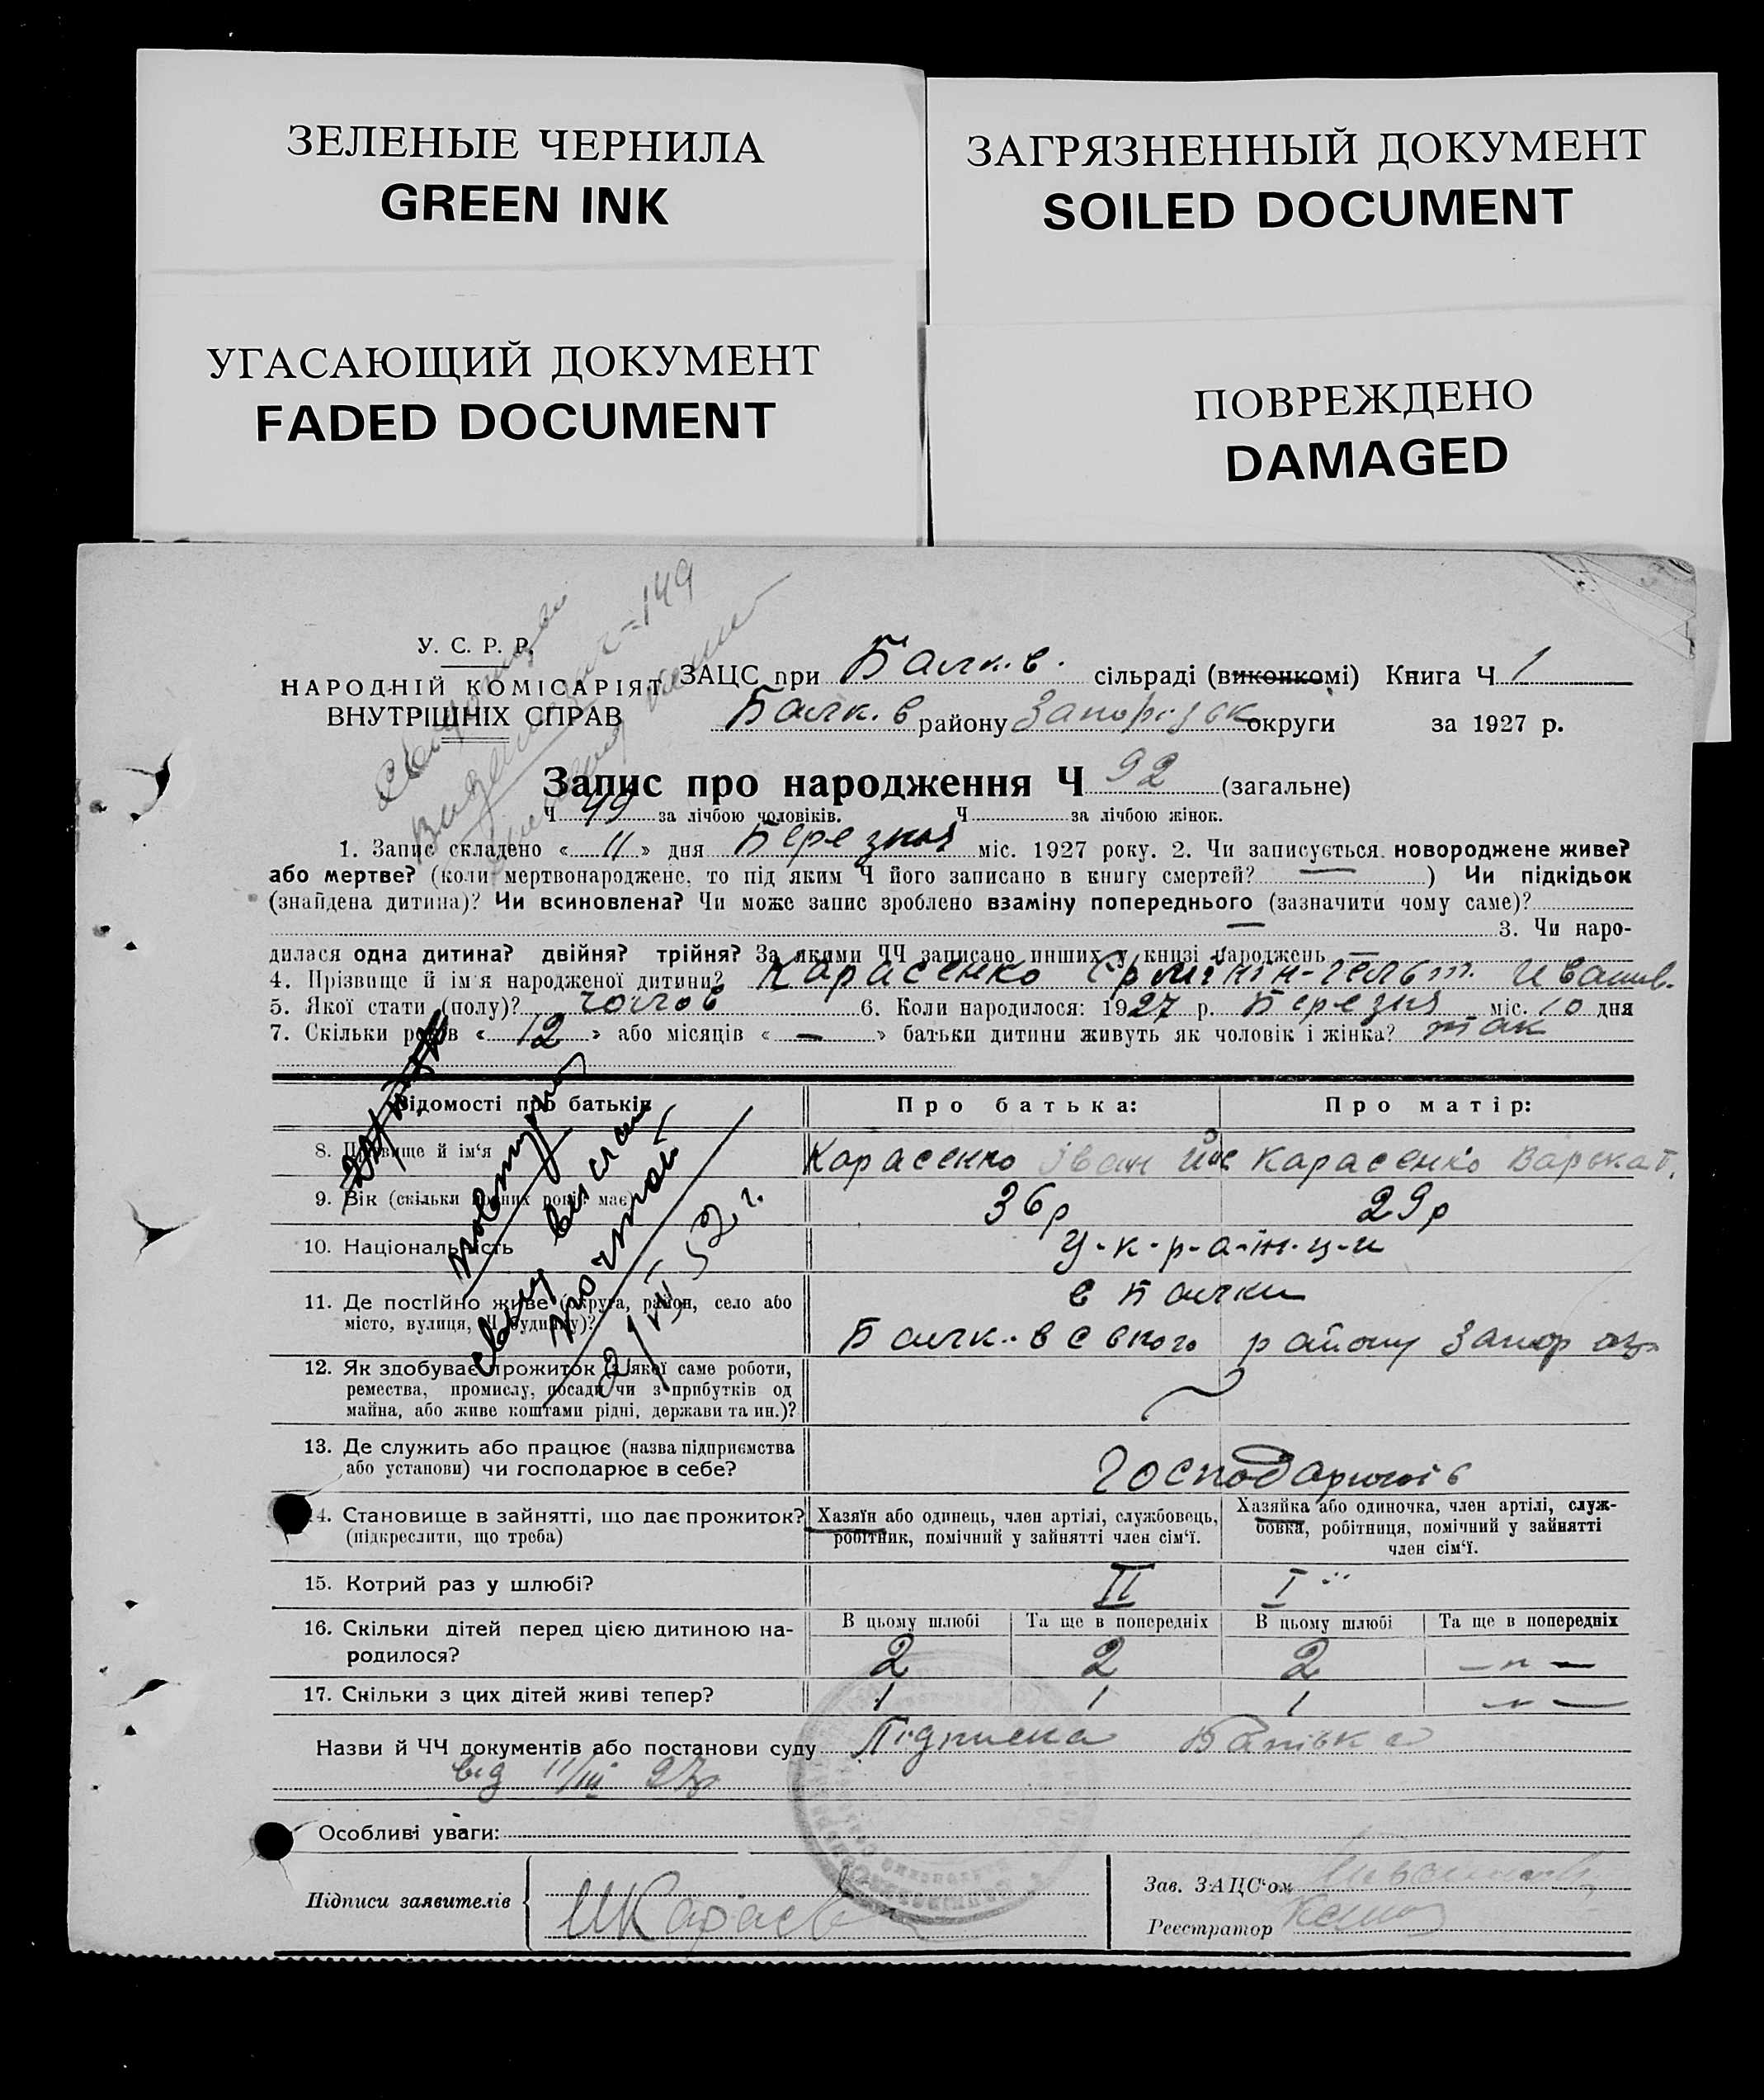 ЗЕЛЕНЫЕ ЧЕРНИЛА
GREEN INK
ЗАГРЯЗНЕННЫЙ ДОКУМЕНТ
SOILED DOCUMENT
УГАСАЮЩИЙ ДОКУМЕНТ
FADED DOCUMENT
ПОВРЕЖДЕНО
DAMAGED
У. С. Р. Р.
НАРОДНІЙ КОМІСАРІЯТ
ВНУТРІШНІХ СПРАВ
ЗАЦС при Балк.в. сільраді (виконкомі) Книга Ч 1
Балк.в району Запорізьк округи за 1927 р.
Запис про народження Ч 92 (загальне)
Ч 49 за лічбою чоловіків. Ч за лічбою жінок.
1. Запис складено « 11 » дня Березня міс. 1927 року. 2. Чи записується новороджене живе?
або мертве? (коли мертвонароджене, то під яким Ч його записано в книгу смертей? — ) Чи підкідьок
(знайдена дитина)? Чи всиновлена? Чи може запис зроблено взаміну попереднього (зазначити чому саме)?
— 3. Чи наро-
дилася одна дитина? двійня? трійня? За якими ЧЧ записано инших у книзі народжень
4. Прізвище й ім'я народженої дитини? Карасенко
5. Якої стати (полу)? чолов 6. Коли народилося: 1927 р. Березня міс. 10 дня
7. Скільки років « 12 » або місяців « — » батьки дитини живуть як чоловік і жінка? так
Відомості про батьків
Про батька:
Про матір:
8. Прізвище й ім'я
Карасенко Іван Карасенко
9. Вік (скільки повних років має)
36р 29р
10. Національність
У-к-р-а-ї-н-ц-и
11. Де постійно живе (округа, район, село або
місто, вулиця, Ч будинку)?
с Балки
Балк.вського району Запор
12. Як здобуває прожиток (з якої саме роботи,
ремества, промислу, посади чи з прибутків од
майна, або живе коштами рідні, держави та ин.)?
13. Де служить або працює (назва підприємства
або установи) чи господарює в себе?
14. Становище в зайнятті, що дає прожиток?
(підкреслити, що треба)
Хазяїн або одинець, член артілі, службовець,
робітник, помічний у зайнятті член сім'ї.
Хазяйка або одиночка, член артілі, служ-
бовка, робітниця, помічний у зайнятті
член сім'ї.
15. Котрий раз у шлюбі?
II I
16. Скільки дітей перед цією дитиною на-
родилося?
В цьому шлюбі Та ще в попередніх В цьому шлюбі Та ще в попередніх
2 2 2 —〃—
17. Скільки з цих дітей живі тепер?
1 1 1 —〃—
Назви й ЧЧ документів або постанови суду Підписка
від 11/III 27р
Особливі уваги:
Підписи заявителів
Зав. ЗАЦС'ом
Реєстратор